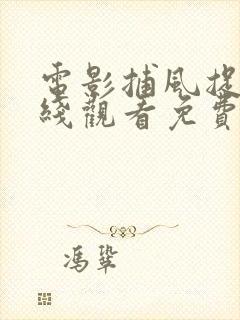 電影捕風捉
綫觀看免費
馮鞏